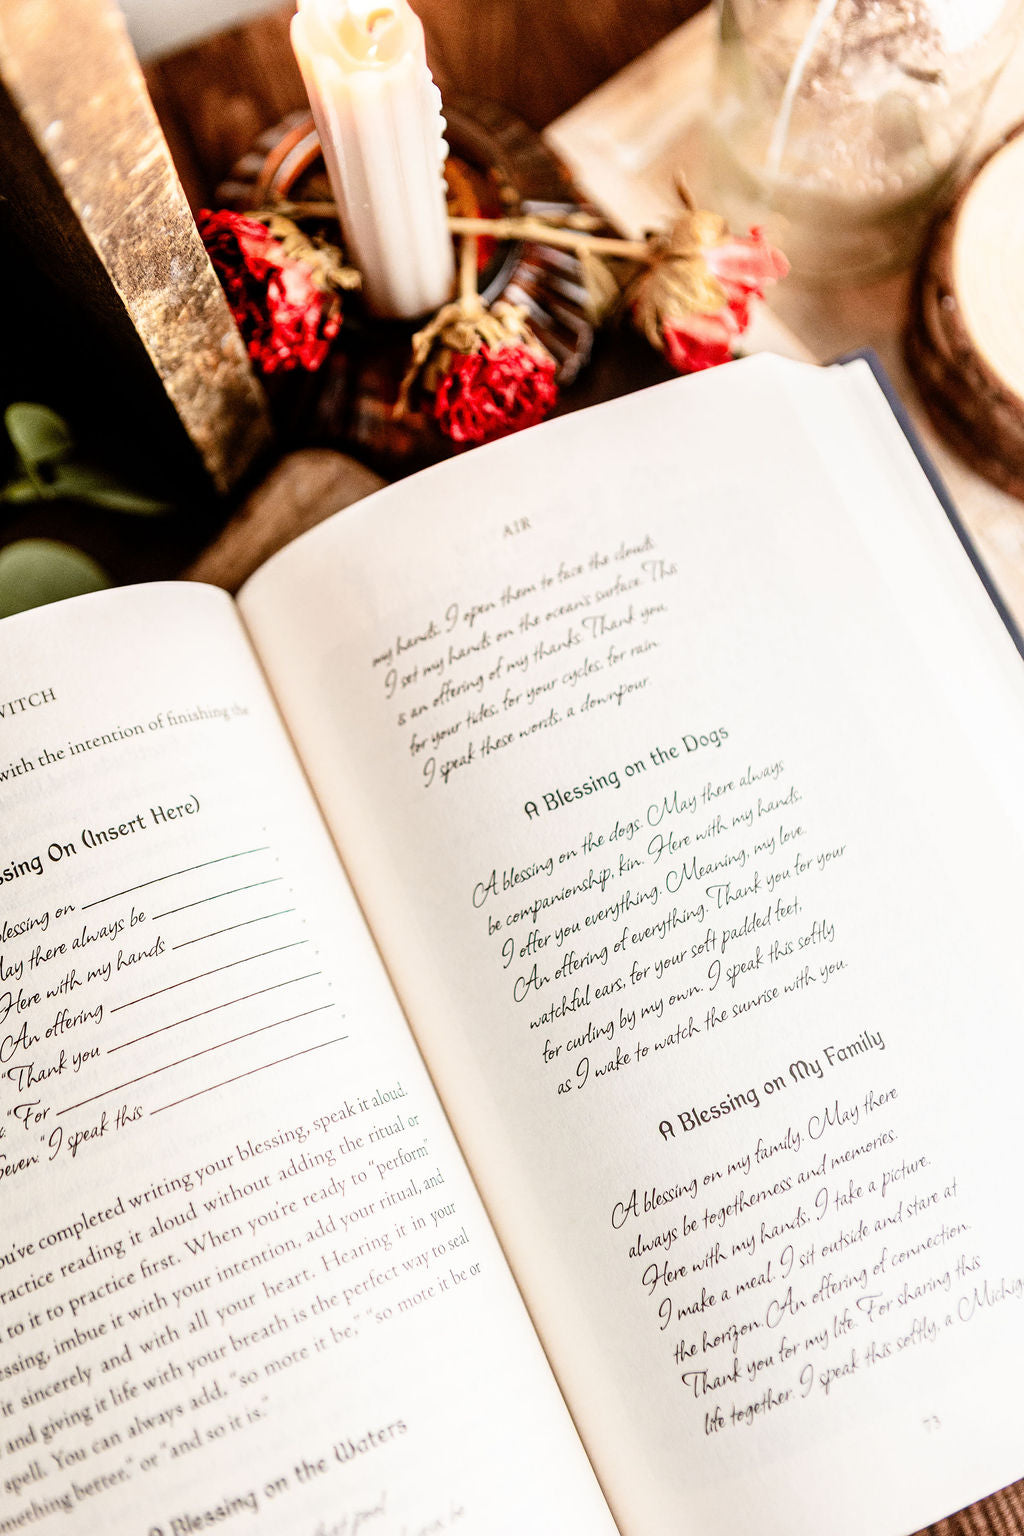 WITCH
with the intention of finishing the
ssing On (Insert Here)
lessing on
ay there always be
Here with my hands
An offering
"Thank you
"For
Seven: "I speak this
ou've completed writing your blessing, speak it aloud.
ractice reading it aloud without adding the ritual or
to it to practice first. When you're ready to "perform"
essing, imbue it with your intention, add your ritual, and
it sincerely and with all your heart. Hearing it in your
and giving it life with your breath is the perfect way to seal
spell. You can always add, "so mote it be," "so mote it be or
mething better," or "and so it is."
A Blessing on the Waters
AIR
my hands. I open them to face the clouds.
I set my hands on the ocean's surface. This
is an offering of my thanks. Thank you
for your tides, for your cycles, for rain.
I speak these words, a downpour.
A Blessing on the Dogs
A blessing on the dogs. May there always
be companionship, kin. Here with my hands,
I offer you everything. Meaning, my love.
An offering of everything. Thank you for your
watchful ears, for your soft padded feet,
for curling by my own. I speak this softly
as I wake to watch the sunrise with you.
A Blessing on My Family
A blessing on my family. May there
always be togetherness and memories.
Here with my hands, I take a picture.
I make a meal. I sit outside and stare at
the horizon. An offering of connection.
Thank you for my life. For sharing this
life together. I speak this softly, a Michig
73